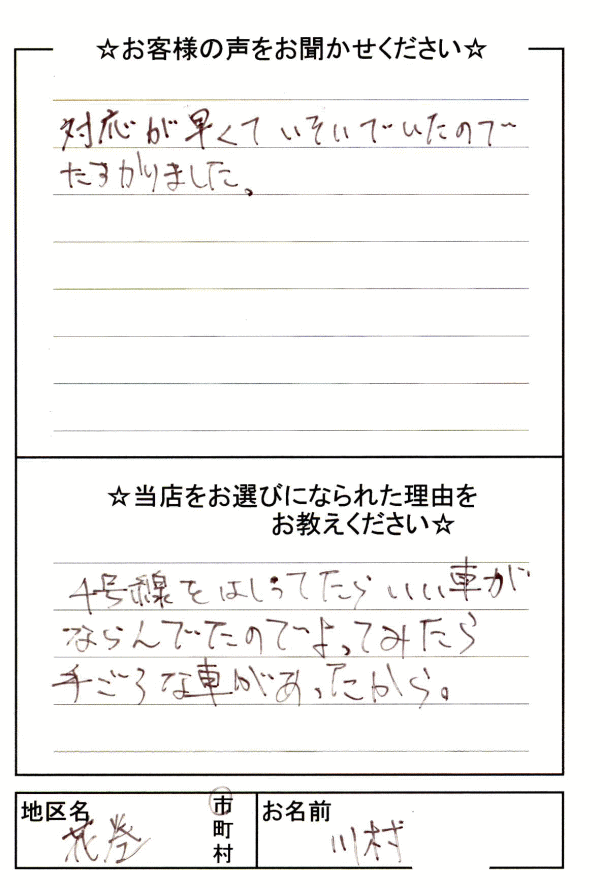 ☆お客様の声をお聞かせください☆
対応が早くていそいでいたので
たすかりました。
☆当店をお選びになられた理由を
お教えください☆
4号線をはしってたらいい車が
ならんでたのでよってみたら
手ごろな車があったから。
地区名
花巻
市
町
村
お名前
川村